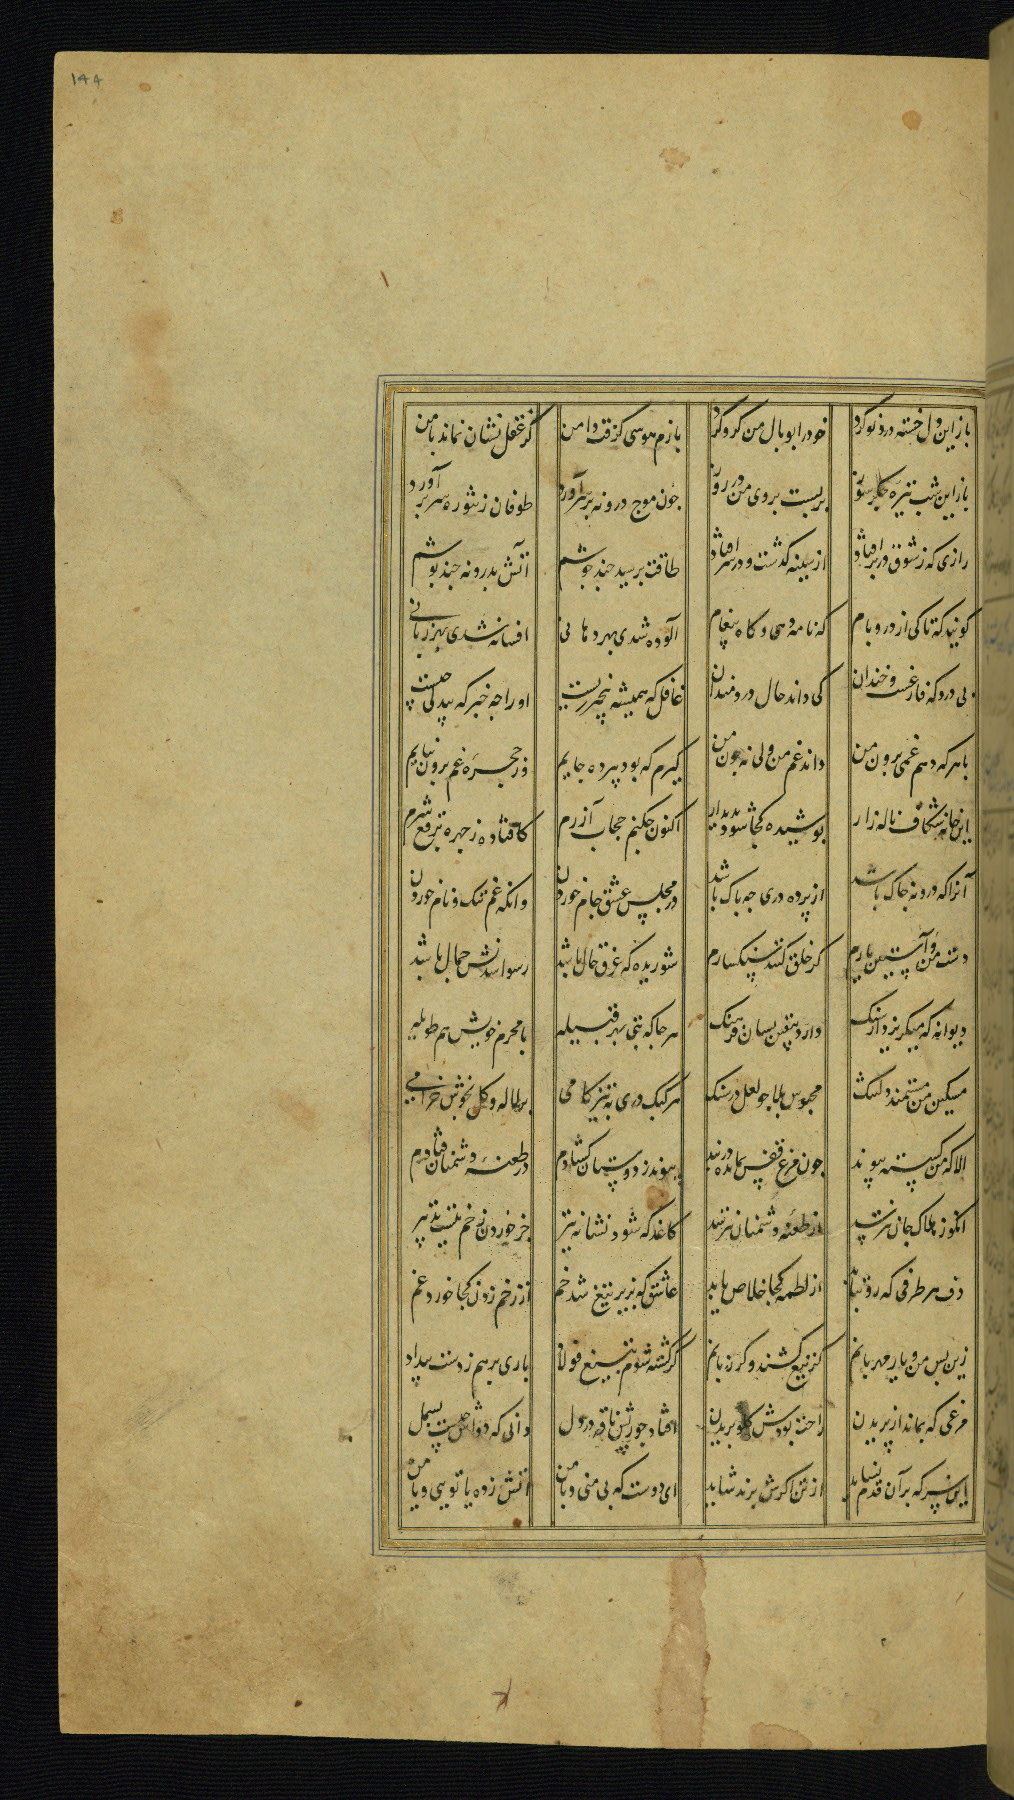 ۱۴۴
باز این دل خسته درد نو کرد خود را بوبال من گرو کرد بازم هوسی گرفت دامن کز عقل نشان نماند با من
باز این شب تیره جگر سوز بر بست بروی من در روز چون موج درونه بر سر آورد طوفان ز تنوره سر بر آورد
رازی که ز شوق در بر افتاد از سینه گذشت و در سر افتاد طاقت برسید چند جوشم آتش بدرونه چند پوشم
گویند که تا کی از در و بام که نامه دهی و گاه پیغام آلوده شدی بهر دهانی افسانه شدی بهر زبانی
بی درد که فارغست و خندان کی داند حال دردمندان غافل که همیشه بیخبر زیست او را چه خبر که بیدلی چیست
با هر که دهم غمی برون من داند غم من ولی نه چون من گیرم که بود بپرده جایم در حجره غم برون نیایم
این خانه شکاف ناله زار پوشیده کجا شود بدیدار اکنون چکنم حجاب آزرم کافتاده ز چهره برقع شرم
آنرا که درونه چاک باشد از پرده دری چه باک باشد در مجلس عشق جام خوردن وانگه غم ننگ و نام خوردن
دست من و آستین یارم گر خلق کنند سنگسارم شوریده که غرق حال باشد رسوا شدنش جمال باشد
دیوانه که میگریزد از سنگ دارد بیقین بسان فرهنگ هر جا که بتی بهر قبیله با محرم خویش هم طویله
مسکین من مستمند دلتنگ محبوس بلا چو لعل در سنگ هر کبک دری به تیز کامی بر لاله و گل بخوش خرامی
الا که من گسسته پیوند چون مرغ قفس بمانده در بند پیوند ز دوستان گشادم در طعنه دشمنان فتادم
انکو ز هلاک جان نترسد از طعنه دشمنان نترسد کاغذ که شود نشانه تیر جز خوردن زخم نیست تدبیر
دف هر طرفی که رو نماید از لطمه کجا خلاص یابد عاشق که بزیر تیغ شد خم از زخم زدن کجا خورد غم
زین پس من و یار مهربانم گر تیغ کشند و گر زبانم گر کشته شوم به تیغ فولاد باری برهم ز دست بیداد
مرغی که بماند از پریدن راحت بودش گلو بریدن افتاد چو رشته در دل دانی که دواش چیست بسمل
این سر که بر آن قدم نساید از تن اگرش برند شاید ای دوست که بی منی و با من آتش زده یا تویی و یا من